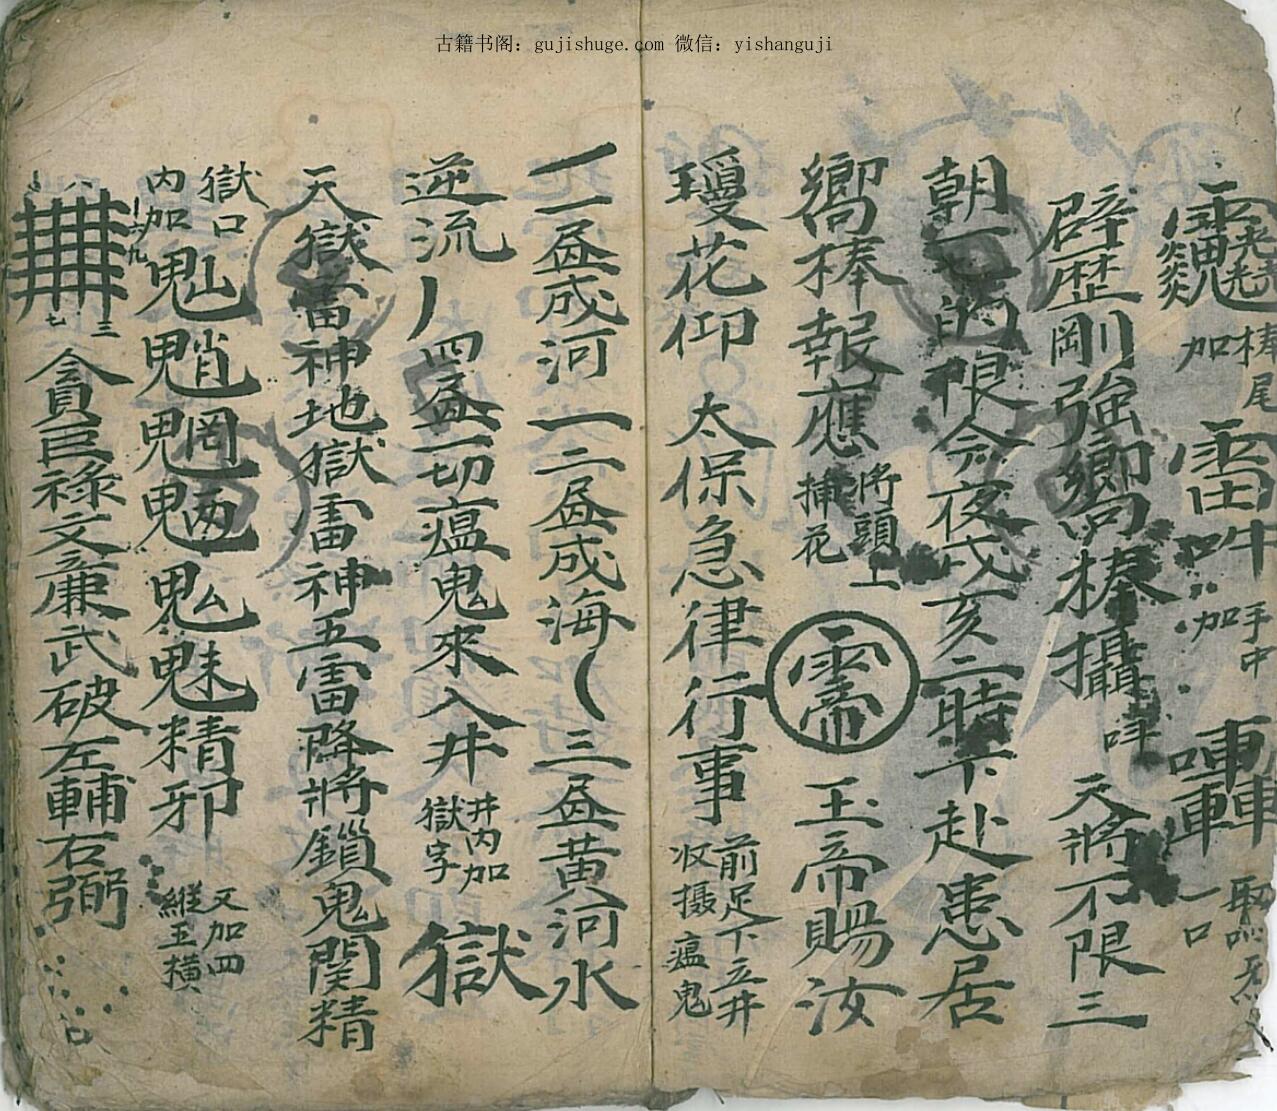 古籍书阁：gujishuge.com 微信：yishanguji
加 棒尾 雷 吽 加 手中 轟 一口
霹歷剛強 棒攝 天將不限三
朝一七的限今夜戌亥二時下赴患居
棒報應 將頭上插花 玉帝賜汝
瓊花仰 太保急律行事 前足下立井收摄瘟鬼
一一盆成河一二盆成海乀三盆黃河水
逆流丿四盆一切瘟鬼來入井 井内加獄字 獄
天獄雷神地獄雷神五雷降將鎖鬼関精
獄口内加 魈 魅精邪 又加四縱五横
一 六 八 九 七 三 貪巨祿文廉武破左輔右弼